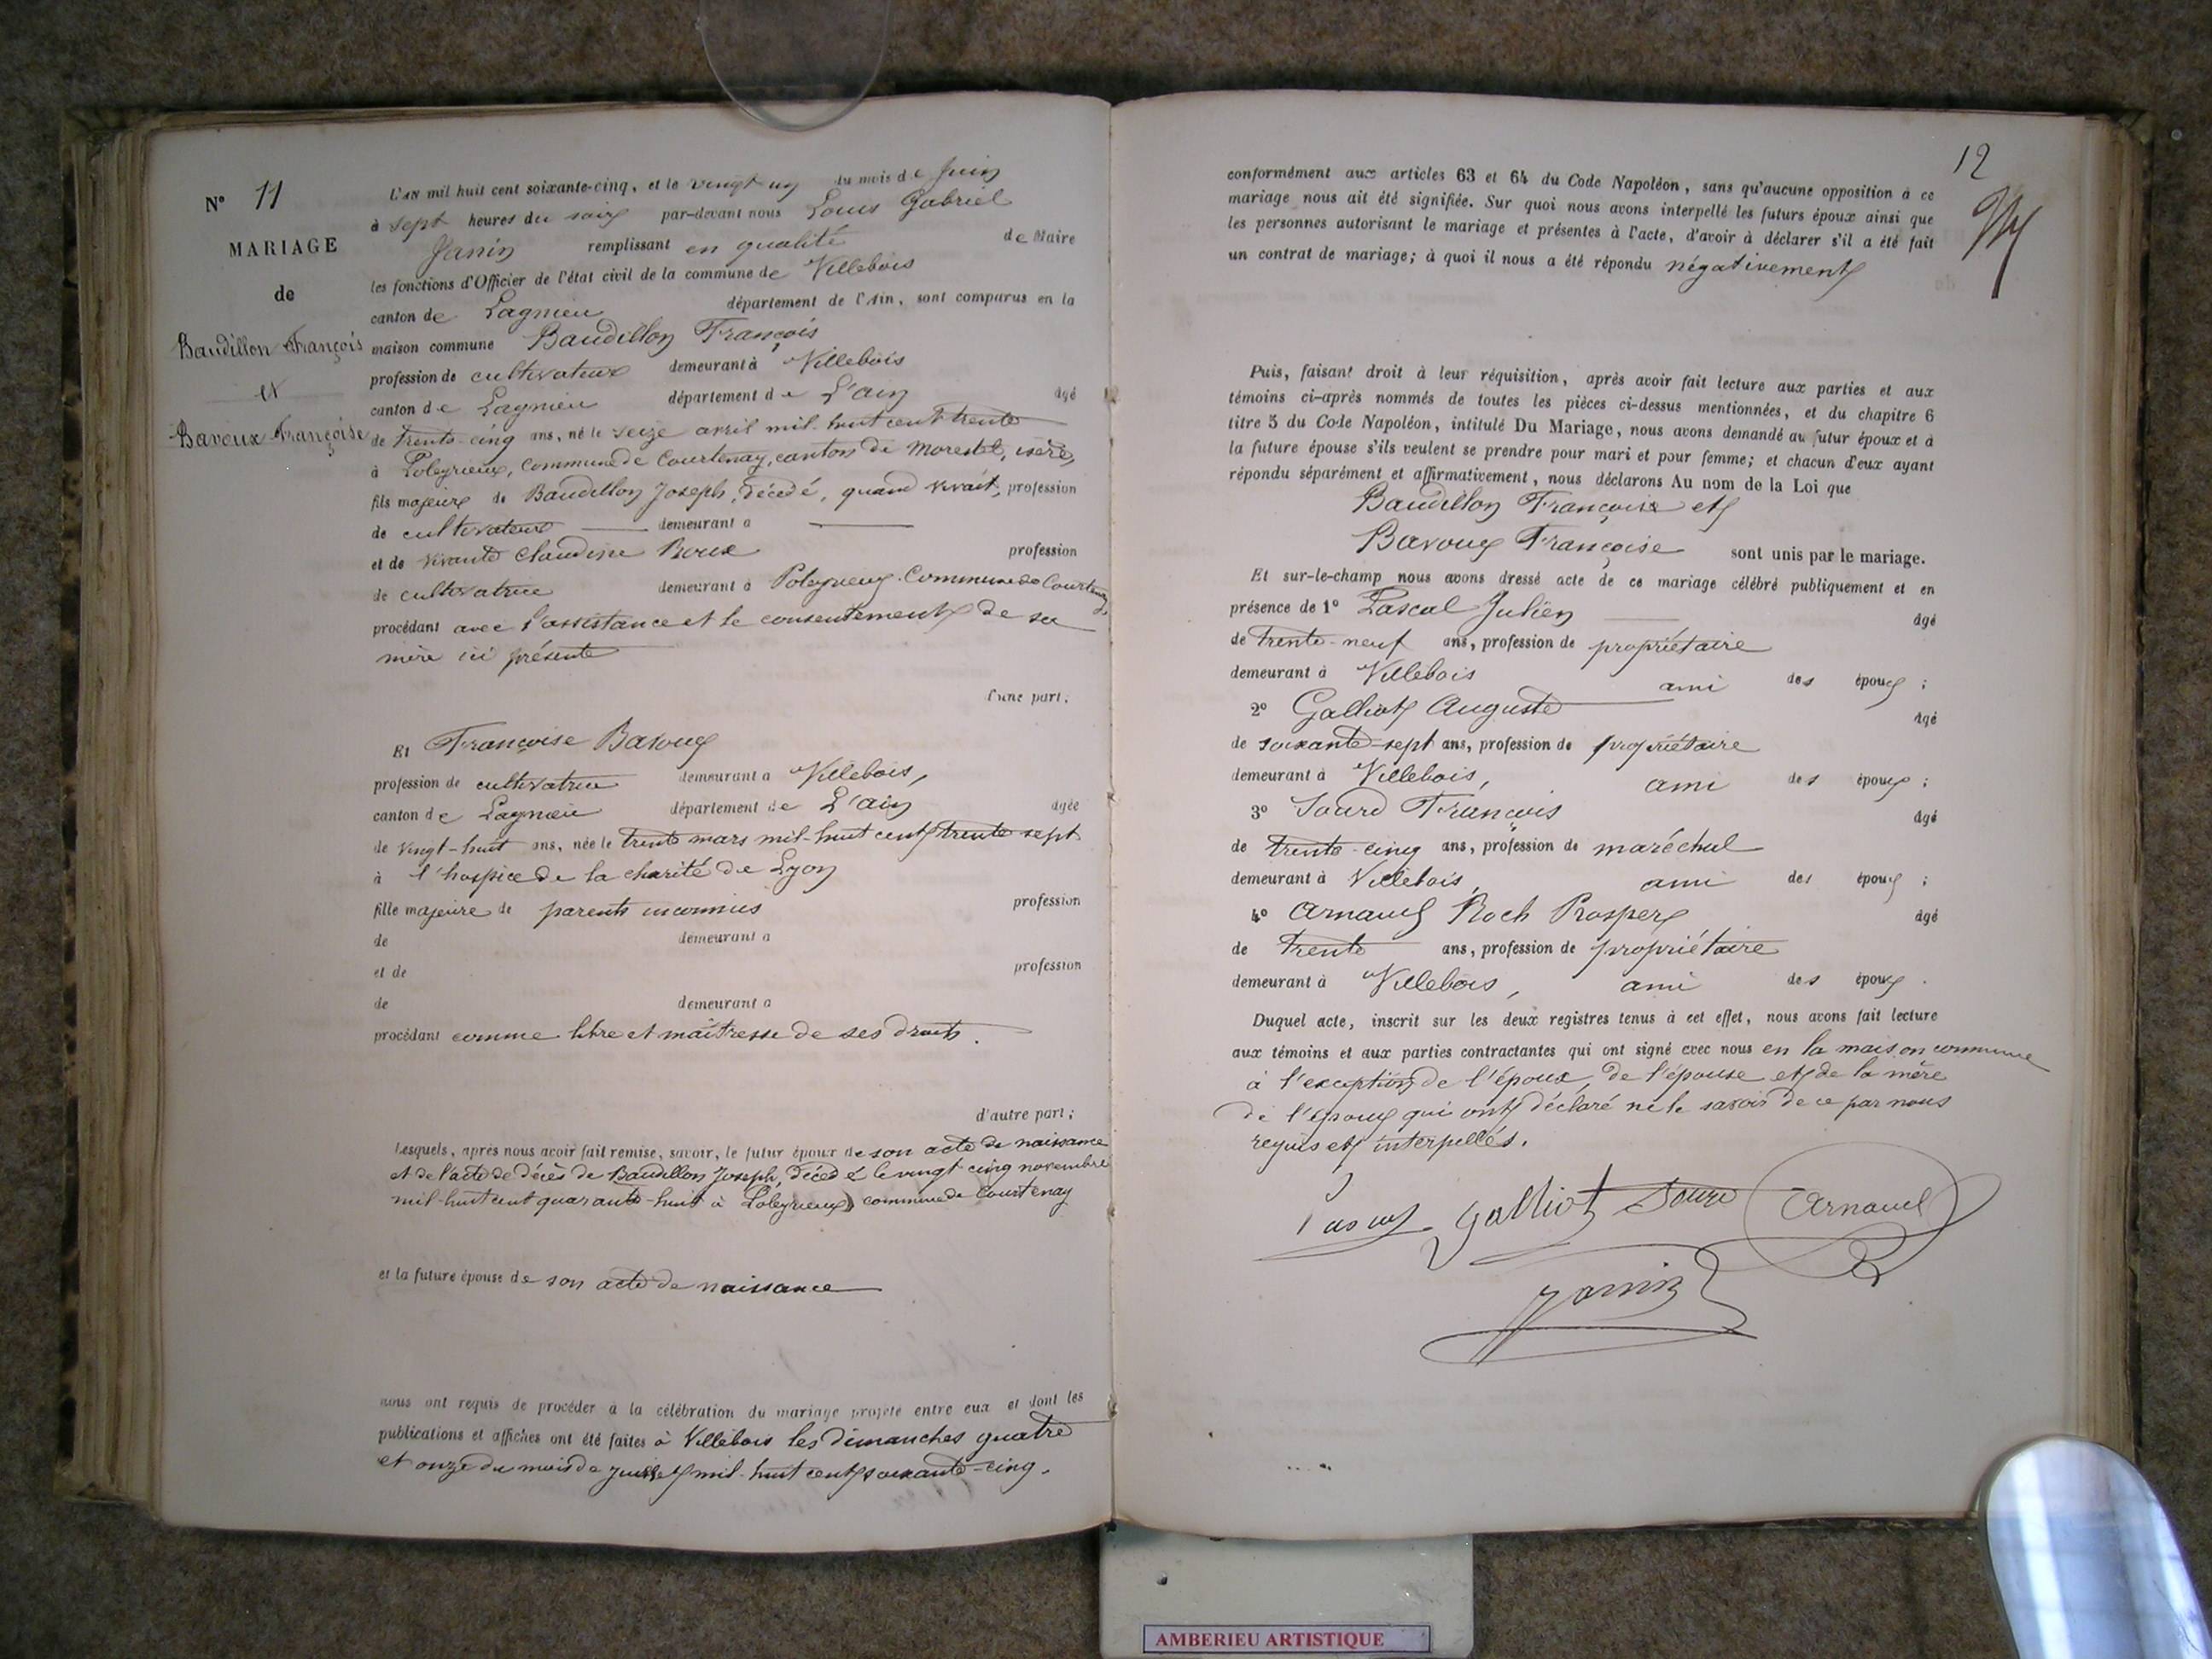 N° 11
MARIAGE
de
Baudillon François
et
Bavoux Françoise
L'AN mil huit cent soixante-cinq, et le vingt un du mois de Juin
à sept heures du soir par-devant nous Louis Gabriel
Janin remplissant en qualité de Maire
les fonctions d'Officier de l'état civil de la commune de Villebois
canton de Lagnieu département de l'Ain, sont comparus en la
maison commune Baudillon François
profession de cultivateur demeurant à Villebois
canton de Lagnieu département de L'ain âgé
de trente-cinq ans, né le seize avril mil-huit cent trente
à Poleyrieux, commune de Courtenay, canton de Morestel, isère,
fils majeur de Baudillon Joseph, décédé, quand vivait, profession
de cultivateur demeurant à
et de vivante Claudine Roux profession
de cultivatrice demeurant à Poleyrieux. Commune de Courtenay,
procédant avec l'assistance et le consentement de sa
mère ici présente
d'une part;
Et Françoise Bavoux
profession de cultivatrice demeurant à Villebois,
canton de Lagnieu département de L'ain âgée
de vingt-huit ans, née le trente mars mil-huit cent trente sept
à l'hospice de la charité de Lyon
fille majeure de parents inconnus profession
de demeurant à
et de profession
de demeurant à
procédant comme libre et maîtresse de ses droits.
d'autre part;
Lesquels, après nous avoir fait remise, savoir, le futur époux de son acte de naissance
et de l'acte de décès de Baudillon Joseph, décédé le vingt cinq novembre
mil-huit cent quarante-huit à Poleyrieux, commune de Courtenay
et la future épouse de son acte de naissance
nous ont requis de procéder à la célébration du mariage projeté entre eux et dont les
publications et affiches ont été faites à Villebois les dimanches quatre
et onze du mois de mil-huit cent soixante-cinq.
12
conformément aux articles 63 et 64 du Code Napoléon, sans qu'aucune opposition à ce
mariage nous ait été signifiée. Sur quoi nous avons interpellé les futurs époux ainsi que
les personnes autorisant le mariage et présentes à l'acte, d'avoir à déclarer s'il a été fait
un contrat de mariage; à quoi il nous a été répondu négativement
Puis, faisant droit à leur réquisition, après avoir fait lecture aux parties et aux
témoins ci-après nommés de toutes les pièces ci-dessus mentionnées, et du chapitre 6
titre 5 du Code Napoléon, intitulé Du Mariage, nous avons demandé au futur époux et à
la future épouse s'ils veulent se prendre pour mari et pour femme; et chacun d'eux ayant
répondu séparément et affirmativement, nous déclarons Au nom de la Loi que
Baudillon François et
Bavoux Françoise sont unis par le mariage.
Et sur-le-champ nous avons dressé acte de ce mariage célébré publiquement et en
présence de 1° Pascal Julien âgé
de trente-neuf ans, profession de propriétaire
demeurant à Villebois ami des époux;
2° Galliot Auguste âgé
de soixante-sept ans, profession de propriétaire
demeurant à Villebois, ami des époux;
3° Sourd François âgé
de trente-cinq ans, profession de maréchal
demeurant à Villebois, ami des époux;
4° Arnaud Roch Prosper âgé
de trente ans, profession de propriétaire
demeurant à Villebois, ami des époux.
Duquel acte, inscrit sur les deux registres tenus à cet effet, nous avons fait lecture
aux témoins et aux parties contractantes qui ont signé avec nous en la maison commune
à l'exception de l'époux, de l'épouse et de la mère
de l'époux qui ont déclaré ne le savoir de ce par nous
requis et interpellés.
Pascal Galliot Sourd Arnaud
Janin
AMBERIEU ARTISTIQUE